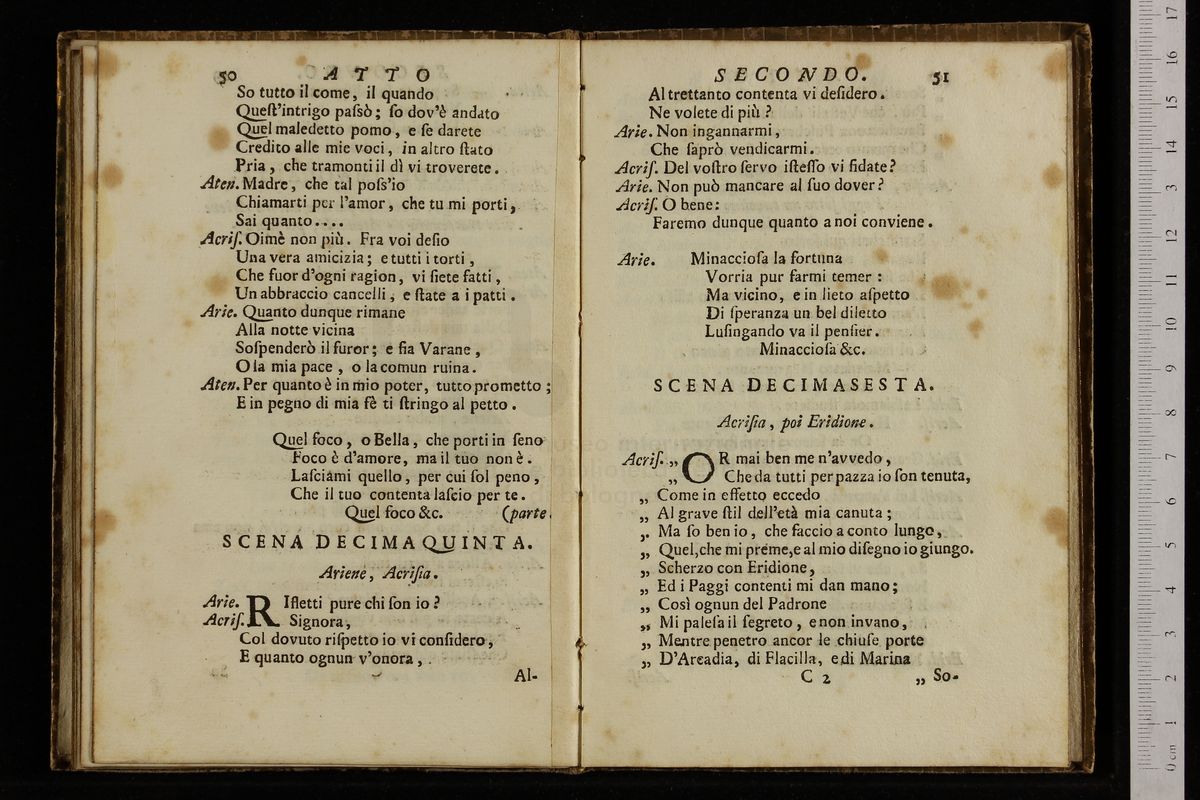 50 ATTO
So tutto il come, il quando
Queſt'intrigo paſsò; ſo dov'è andato
Quel maledetto pomo, e ſe darete
Credito alle mie voci, in altro ſtato
Pria, che tramonti il dì vi troverete.
Aten. Madre, che tal poſs'io
Chiamarti per l'amor, che tu mi porti,
Sai quanto....
Acriſ. Oimè non più. Fra voi deſio
Una vera amicizia; e tutti i torti,
Che fuor d'ogni ragion, vi ſiete fatti,
Un abbraccio cancelli, e ſtate a i patti.
Arie. Quanto dunque rimane
Alla notte vicina
Soſpenderò il furor; e ſia Varane,
O la mia pace, o la comun ruina.
Aten. Per quanto è in mio poter, tutto prometto;
E in pegno di mia fè ti ſtringo al petto.
Quel foco, o Bella, che porti in ſeno
Foco è d'amore, ma il tuo non è.
Laſciami quello, per cui ſol peno,
Che il tuo contenta laſcio per te.
Quel foco &c. (parte.
SCENA DECIMAQUINTA.
Ariene, Acriſia.
Arie. RIfletti pure chi ſon io?
Acriſ. Signora,
Col dovuto riſpetto io vi conſidero,
E quanto ognun v'onora,
Al-
SECONDO. 51
Al trettanto contenta vi deſidero.
Ne volete di più?
Arie. Non ingannarmi,
Che ſaprò vendicarmi.
Acriſ. Del voſtro ſervo iſteſſo vi fidate?
Arie. Non può mancare al ſuo dover?
Acriſ. O bene:
Faremo dunque quanto a noi conviene.
Arie. Minaccioſa la fortuna
Vorria pur farmi temer:
Ma vicino, e in lieto aſpetto
Di ſperanza un bel diletto
Luſingando va il penſier.
Minaccioſa &c.
SCENA DECIMASESTA.
Acriſia, poi Eridione.
Acriſ. „ OR mai ben me n'avvedo,
„ Che da tutti per pazza io ſon tenuta,
„ Come in effetto eccedo
„ Al grave ſtil dell'età mia canuta;
„ Ma ſo ben io, che faccio a conto lungo,
„ Quel, che mi preme, e al mio diſegno io giungo.
„ Scherzo con Eridione,
„ Ed i Paggi contenti mi dan mano;
„ Così ognun del Padrone
„ Mi paleſa il ſegreto, e non invano,
„ Mentre penetro ancor le chiuſe porte
„ D'Arcadia, di Flacilla, e di Marina
C 2 „ So-